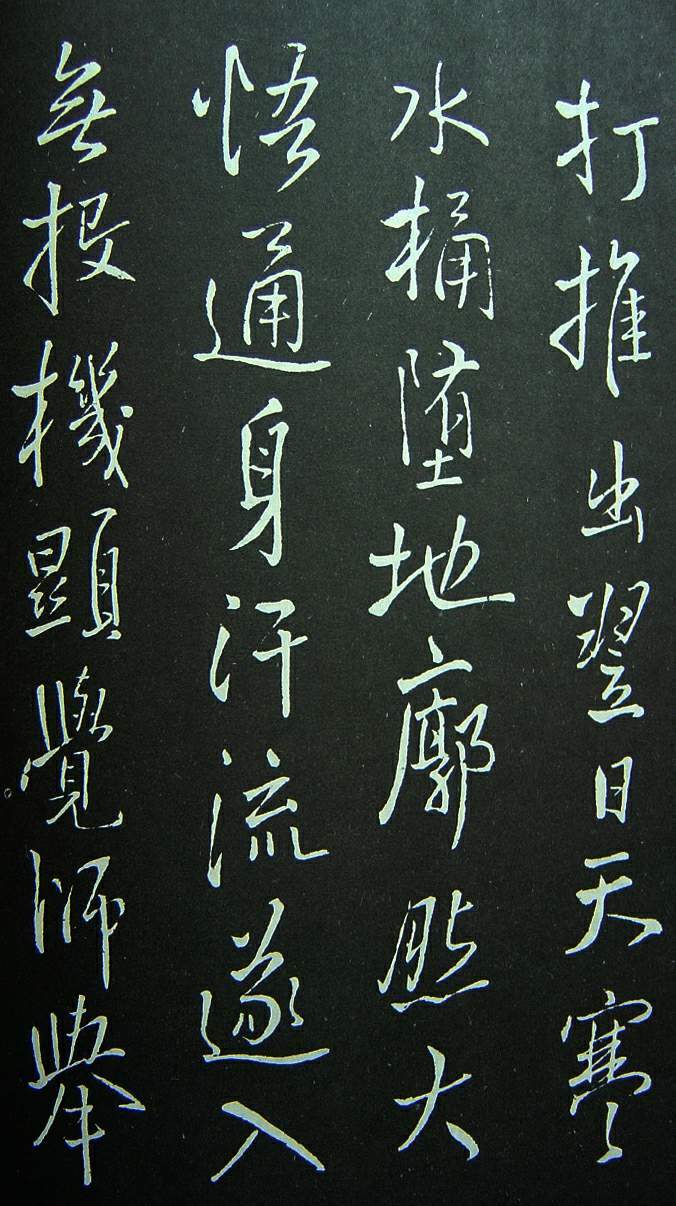 打推出翌日天寒
水桶堕地廓然大
悟通身汗流遂入
室投機顯覺師舉